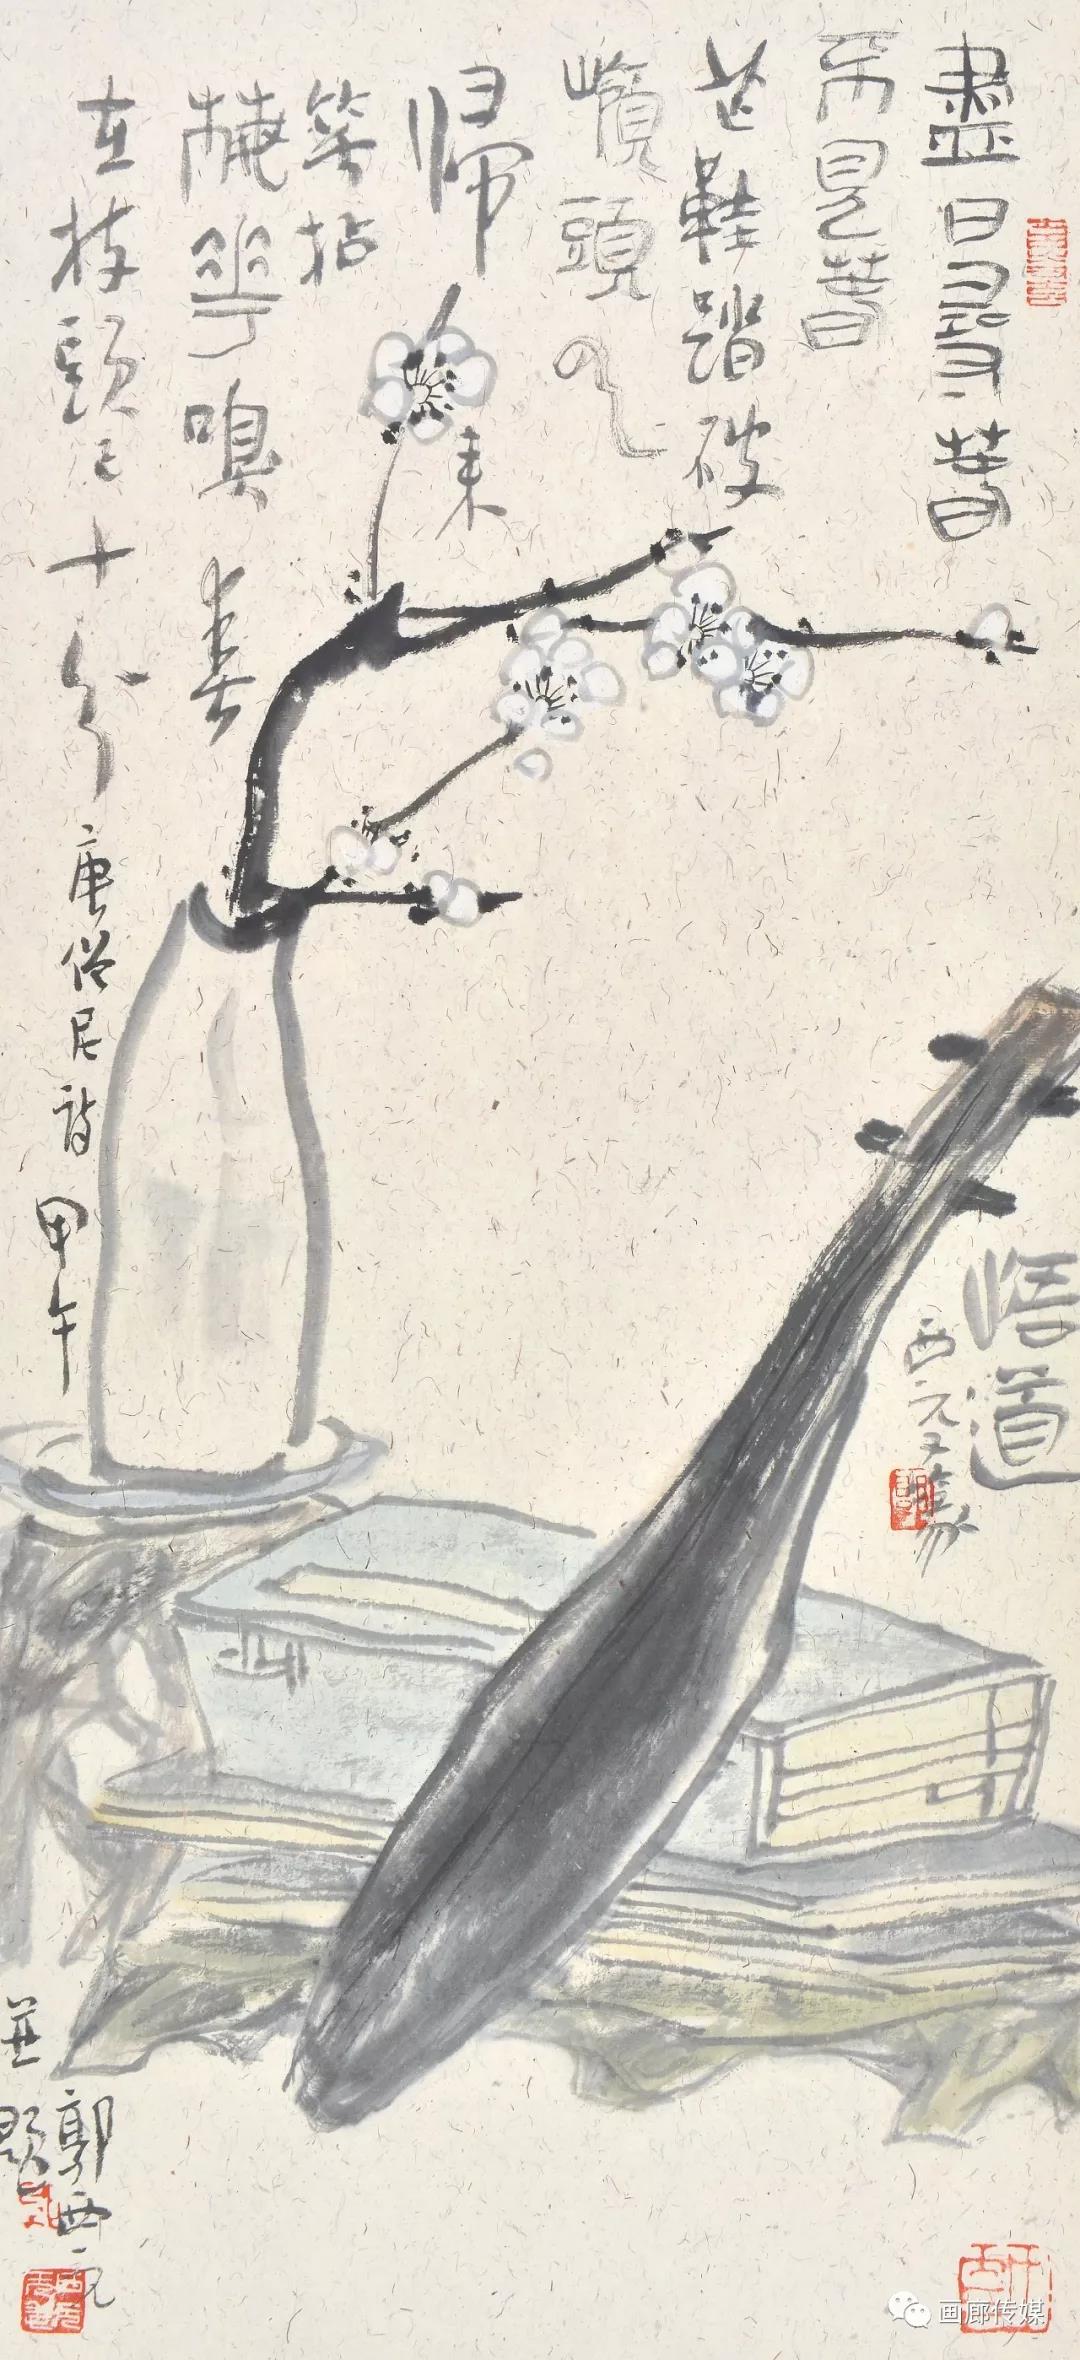 盡日尋春
不見春
芒鞋踏破
嶺頭云
帰來
笑拈
梅華嗅春
在枝頭已十分 唐俗尼詩 甲午
郭西元
並題
悟道
西元又篆
画廊传媒